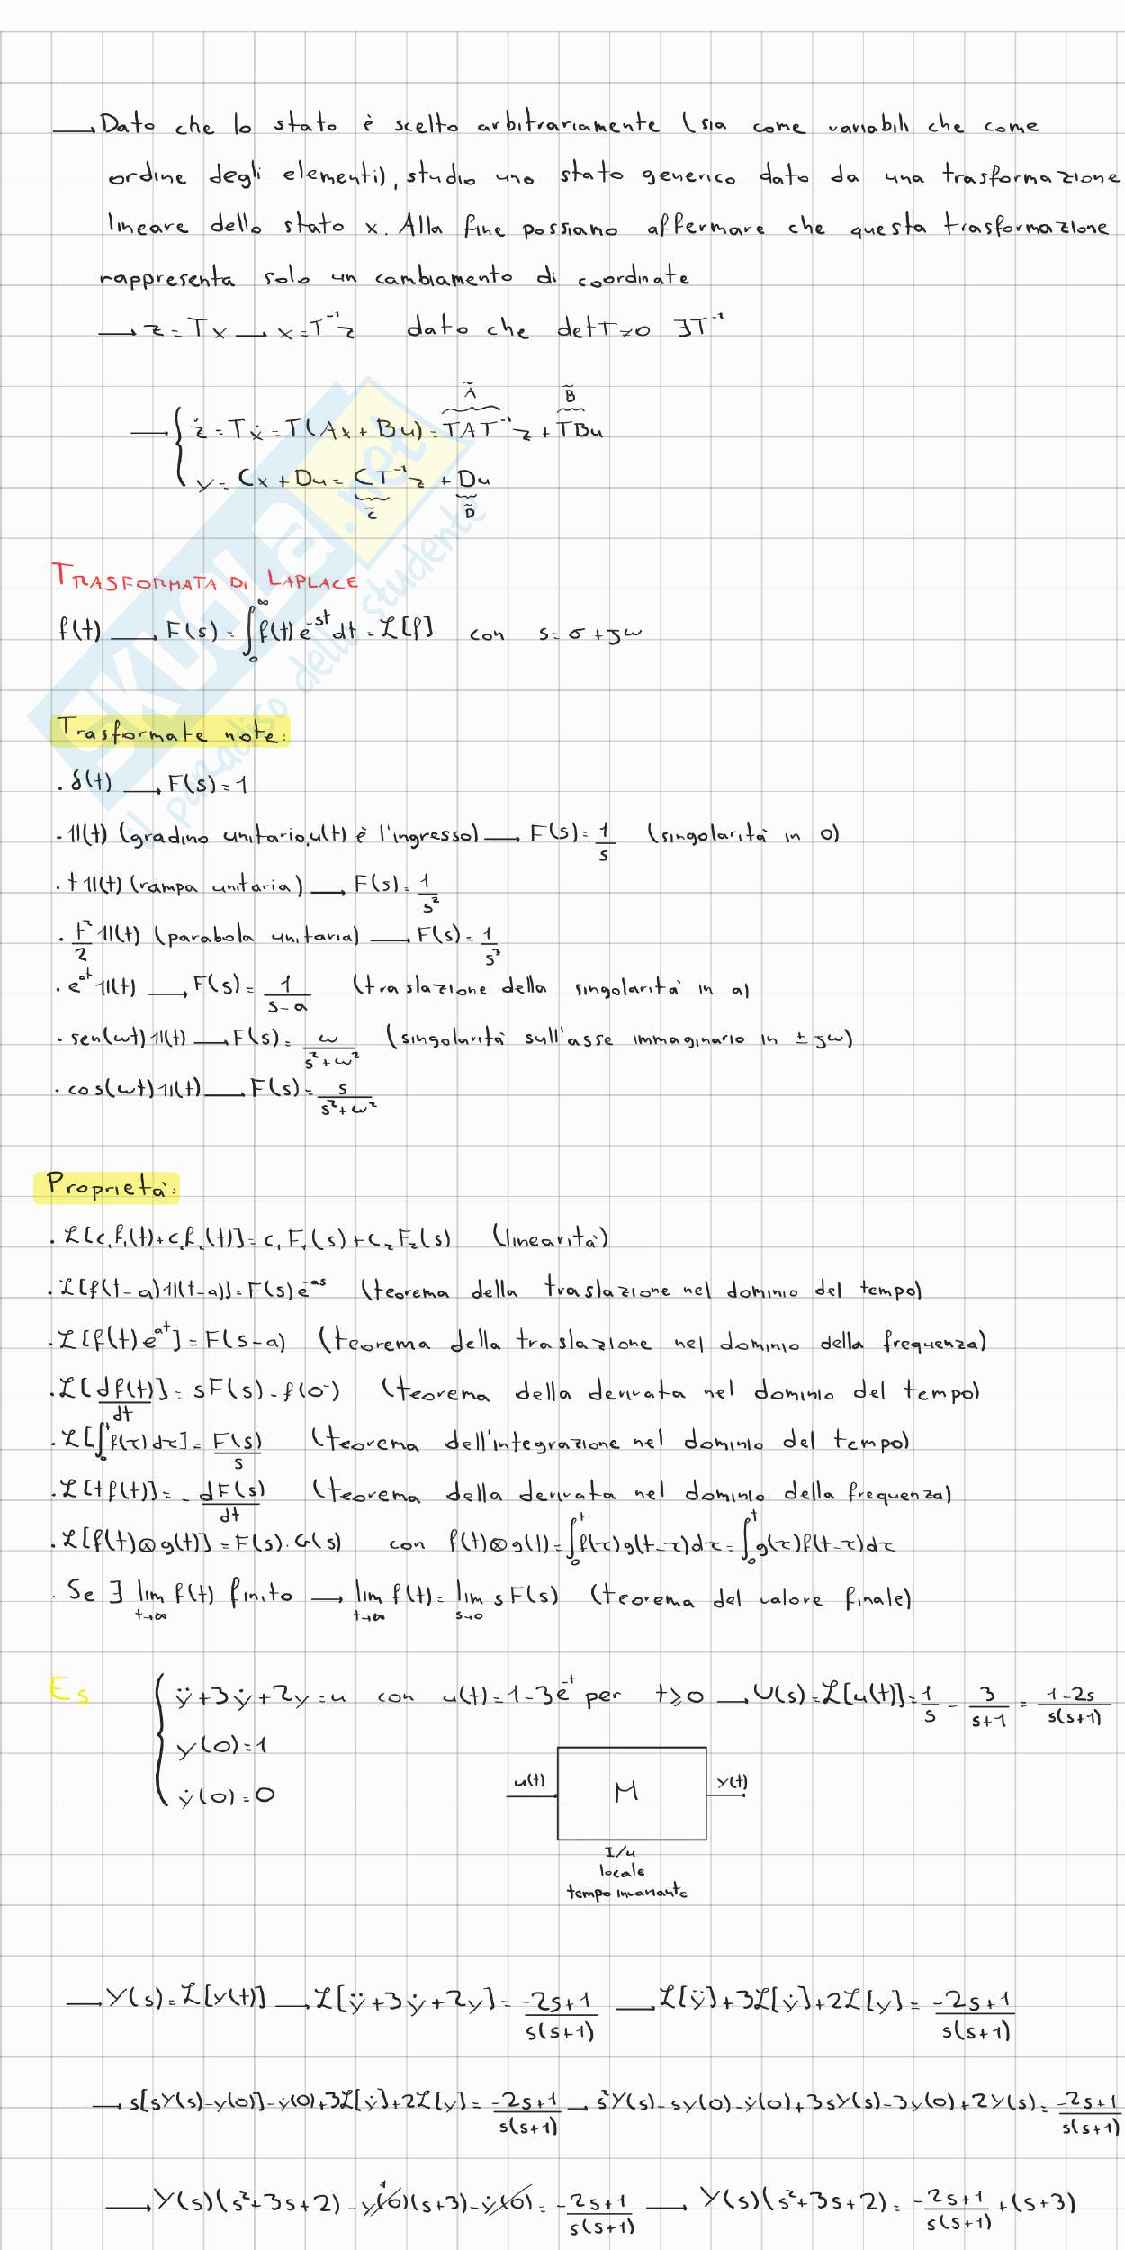 → Dato che lo stato è scelto arbitrariamente (sia come variabili che come
ordine degli elementi), studio uno stato generico dato da una trasformazione
lineare dello stato x. Alla fine possiano affermare che questa trasformazione
rappresenta solo un cambiamento di coordinate
→ z = Tx → x = T⁻¹z dato che detT≠0 ∃T⁻¹
Ã B̃
→ { ż = Tẋ = T(Ax + Bu) = TAT⁻¹z + TBu
y = Cx + Du = CT⁻¹z + Du
C̃ D̃
TRASFORMATA DI LAPLACE
f(t) → F(s) = ∫₀^∞ f(t) e^-st dt = ℒ[f] con s = σ + jω
Trasformate note:
. δ(t) → F(s) = 1
. 1(t) (gradino unitario, u(t) è l'ingresso) → F(s) = 1/s (singolarità in 0)
. t 1(t) (rampa unitaria) → F(s) = 1/s²
. t²/2 1(t) (parabola unitaria) → F(s) = 1/s³
. e^at 1(t) → F(s) = 1/(s-a) (traslazione della singolarità in a)
. sen(ωt) 1(t) → F(s) = ω/(s²+ω²) (singolarità sull'asse immaginario in ± jω)
. cos(ωt) 1(t) → F(s) = s/(s²+ω²)
Proprietà:
. ℒ[c₁f₁(t)+c₂f₂(t)] = c₁F₁(s)+c₂F₂(s) (linearità)
. ℒ[f(t-a)1(t-a)] = F(s)e^-as (teorema della traslazione nel dominio del tempo)
. ℒ[f(t)e^at] = F(s-a) (teorema della traslazione nel dominio della frequenza)
. ℒ[df(t)/dt] = sF(s) - f(0⁻) (teorema della derivata nel dominio del tempo)
. ℒ[∫₀^t f(τ)dτ] = F(s)/s (teorema dell'integrazione nel dominio del tempo)
. ℒ[tf(t)] = -dF(s)/dt (teorema della derivata nel dominio della frequenza)
. ℒ[f(t)⊗g(t)] = F(s)·G(s) con f(t)⊗g(t) = ∫₀^t f(τ)g(t-τ)dτ = ∫₀^t g(τ)f(t-τ)dτ
. Se ∃ lim t→∞ f(t) finito → lim t→∞ f(t) = lim s→0 sF(s) (teorema del valore finale)
Es { ÿ+3ẏ+2y = u con u(t) = 1-3e^-t per t≥0 → U(s) = ℒ[u(t)] = 1/s - 3/(s+1) = (1-2s)/(s(s+1))
y(0) = 1
ẏ(0) = 0
u(t) M y(t)
I/u
locale
tempo invariante
→ Y(s) = ℒ[y(t)] → ℒ[ÿ+3ẏ+2y] = (-2s+1)/(s(s+1)) → ℒ[ÿ]+3ℒ[ẏ]+2ℒ[y] = (-2s+1)/(s(s+1))
→ s[sY(s)-y(0)]-ẏ(0)+3ℒ[ẏ]+2ℒ[y] = (-2s+1)/(s(s+1)) → s²Y(s)-sy(0)-ẏ(0)+3sY(s)-3y(0)+2Y(s) = (-2s+1)/(s(s+1))
→ Y(s)(s²+3s+2) - y(0)(s+3) - ẏ(0) = (-2s+1)/(s(s+1)) → Y(s)(s²+3s+2) = (-2s+1)/(s(s+1)) + (s+3)
SKUOLA.net
il paradiso dello studente